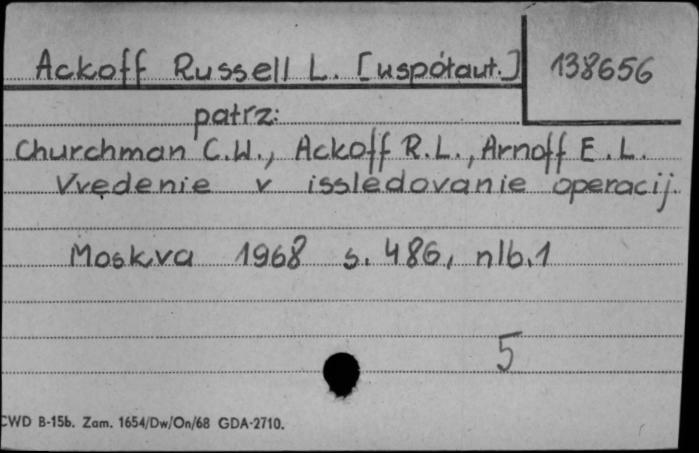 Ackoff Russell L. [współaut.] 138656
patrz:
Churchman C.W., Ackoff R.L., Arnoff E.L.
Vvedenie v issledovanie operacij.
Moskva 1968 s. 486, nlb.1
5
CWD B-15b. Zam. 1654/Dw/On/68 GDA-2710.